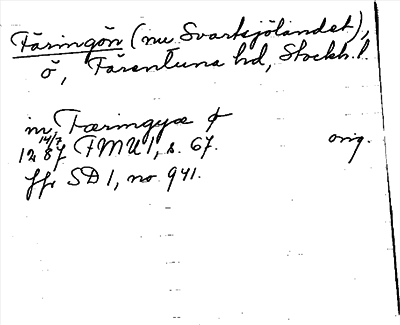 Färingön (nu Svartsjölandet),
ö, Färentuna hd, Stockh. l.
in Færingyæ
14/7
1287 FMU 1, s. 67. orig.
jfr SD 1, no 941.